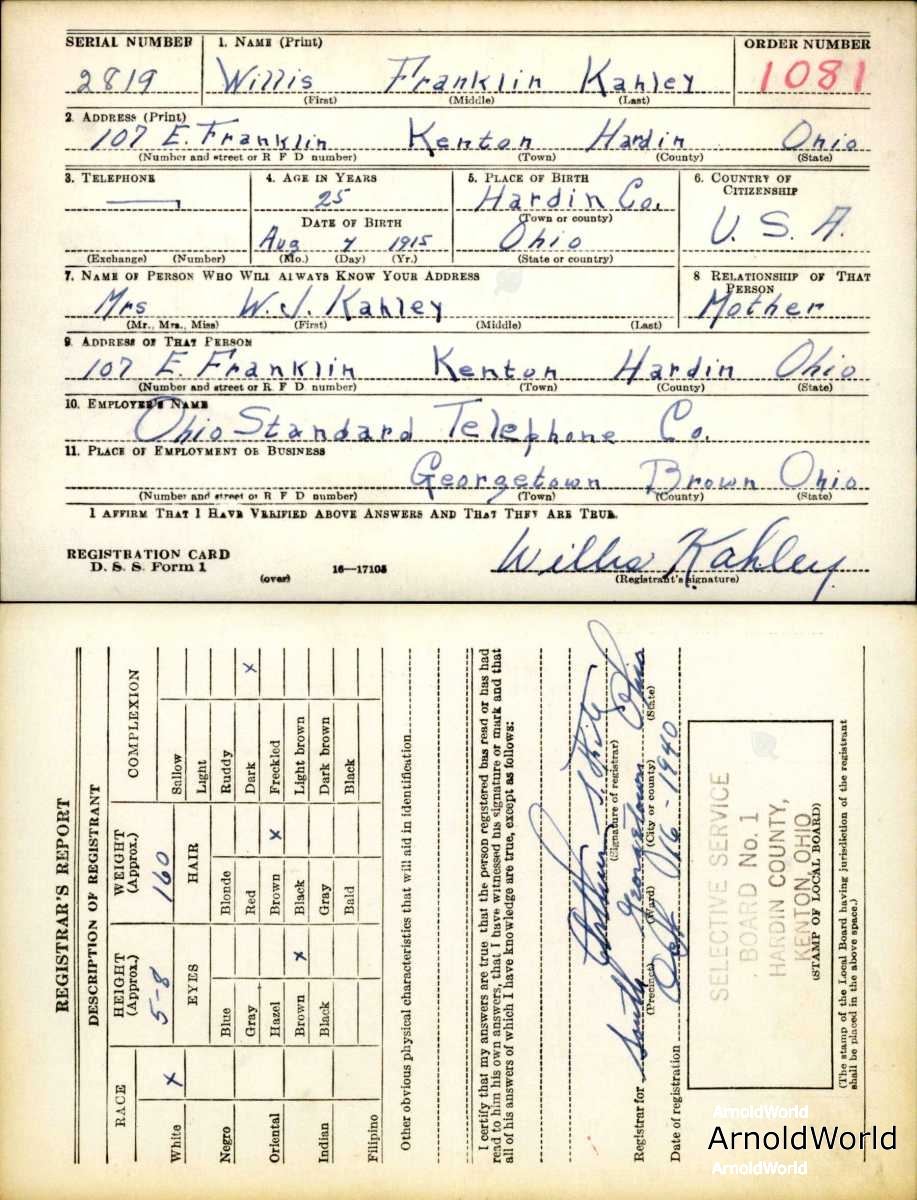 SERIAL NUMBER 1. NAME (Print) ORDER NUMBER
2819 Willis Franklin Kahley 1081
(First) (Middle) (Last)
2. ADDRESS (Print)
107 E. Franklin Kenton Hardin Ohio
(Number and street or R F D number) (Town) (County) (State)
3. TELEPHONE 4. AGE IN YEARS 5. PLACE OF BIRTH 6. COUNTRY OF CITIZENSHIP
25 Hardin Co.
DATE OF BIRTH (Town or county) U. S. A.
Aug 7 1915 Ohio
(Exchange) (Number) (Mo.) (Day) (Yr.) (State or country)
7. NAME OF PERSON WHO WILL ALWAYS KNOW YOUR ADDRESS 8 RELATIONSHIP OF THAT PERSON
Mrs W. J. Kahley Mother
(Mr., Mrs., Miss) (First) (Middle) (Last)
9. ADDRESS OF THAT PERSON
107 E. Franklin Kenton Hardin Ohio
(Number and street or R F D number) (Town) (County) (State)
10. EMPLOYER'S NAME
Ohio Standard Telephone Co.
11. PLACE OF EMPLOYMENT OR BUSINESS
Georgetown Brown Ohio
(Number and street or R F D number) (Town) (County) (State)
I AFFIRM THAT I HAVE VERIFIED ABOVE ANSWERS AND THAT THEY ARE TRUE.
REGISTRATION CARD Willis Kahley
D. S. S. Form 1 (over) 16—17105 (Registrant's signature)
REGISTRAR'S REPORT
DESCRIPTION OF REGISTRANT
RACE HEIGHT (Approx.) WEIGHT (Approx.) COMPLEXION
White x 5-8 160 Sallow
EYES HAIR Light
Negro Blue Blonde Ruddy
Gray Red Dark x
Oriental Hazel Brown x Freckled
Brown x Black Light brown
Indian Black Gray Dark brown
Bald Black
Filipino
Other obvious physical characteristics that will aid in identification
I certify that my answers are true that the person registered has read or has had
read to him his own answers, that I have witnessed his signature or mark and that
all of his answers of which I have knowledge are true, except as follows:
(Signature of registrar)
Registrar for South Georgetown Ohio
(Precinct) (Ward) (City or county) (State)
Date of registration Oct 16 - 1940
SELECTIVE SERVICE
BOARD No. 1
HARDIN COUNTY,
KENTON, OHIO
(STAMP OF LOCAL BOARD)
(The stamp of the Local Board having jurisdiction of the registrant
shall be placed in the above space.)
ArnoldWorld
ArnoldWorld
ArnoldWorld